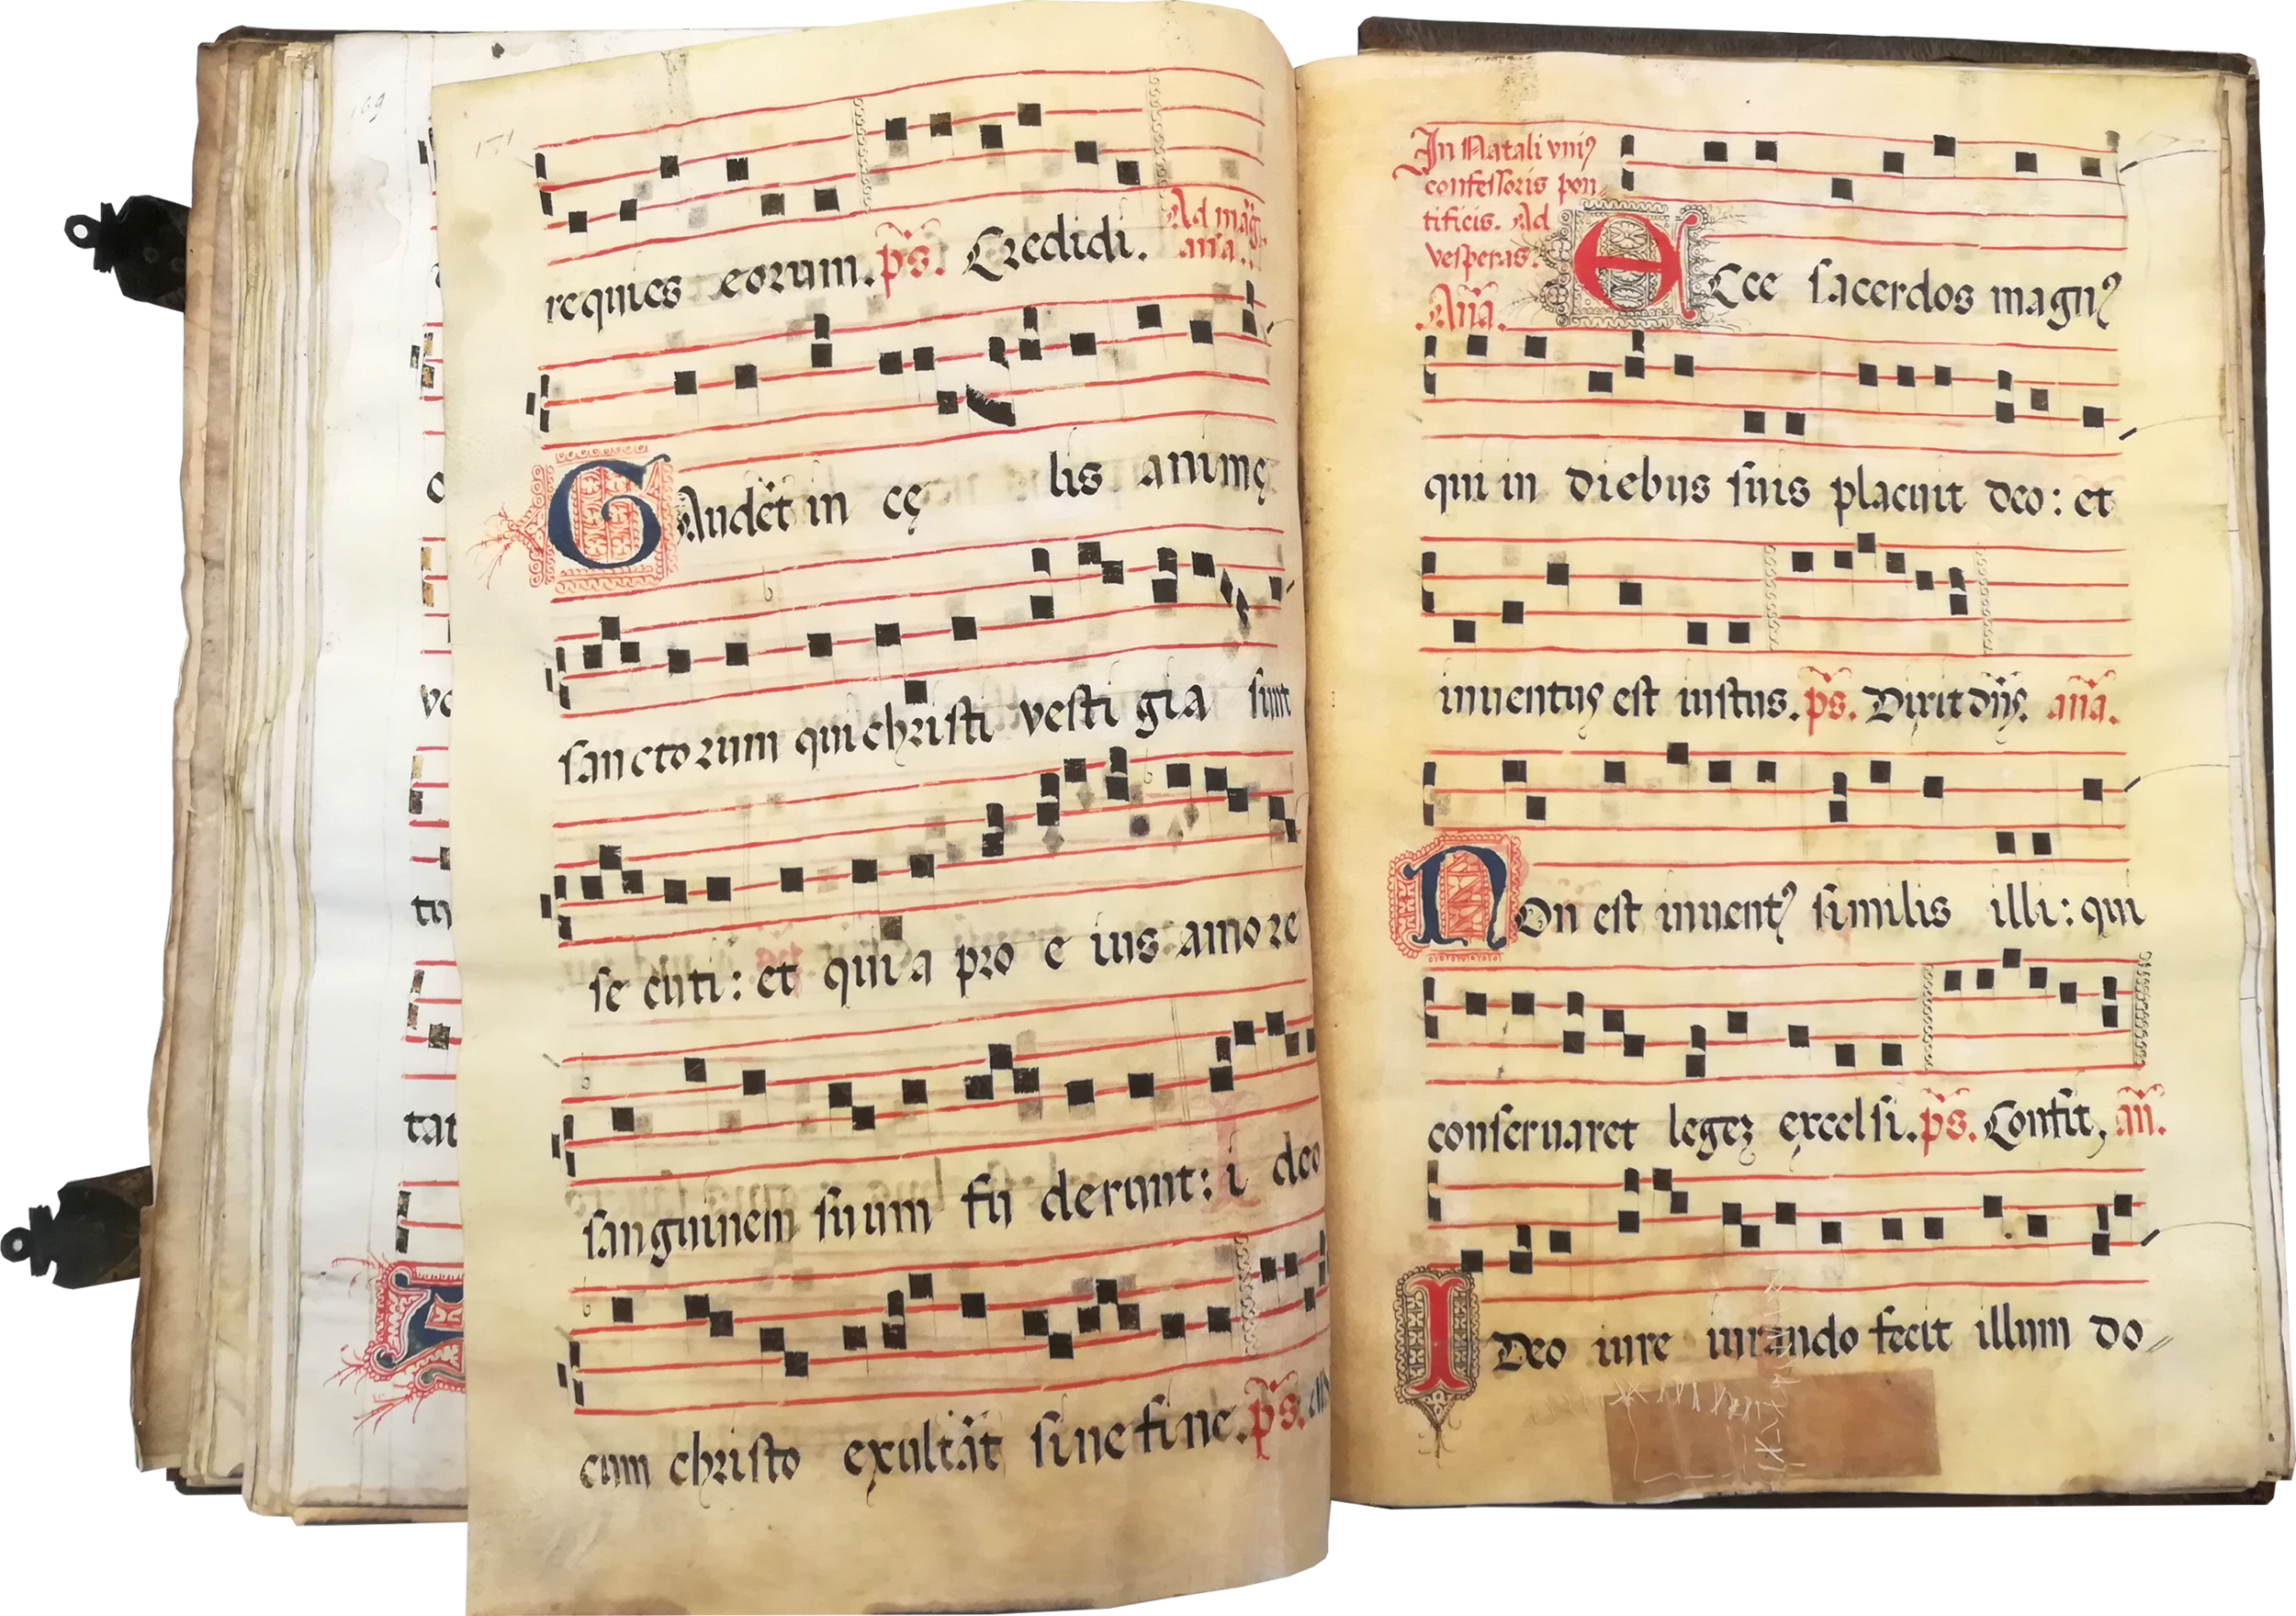 169
tu
tat
171
requies eorum. p̃s. Credidi. Ad mag̃. añа.
GAudẽt in cę lis animę
sanctorum qui christi vesti gia sunt
se cuti: et qui a pro e ius amo re
sanguinem suum fu derunt: i deo
cum christo exultãt sine fine. p̃s.
In Natali vniꝰ
confessoris pon-
tificis. Ad
vesperas.
Añа. ECce sacerdos magnꝰ
qui in diebus suis placuit deo: et
inuentus est iustus. p̃s. Dixit dñs. aña.
NOn est inuentꝰ similis illi: qui
conseruaret legeʒ excelsi. p̃s. Confit, añ.
IDeo iure iurando fecit illum do-